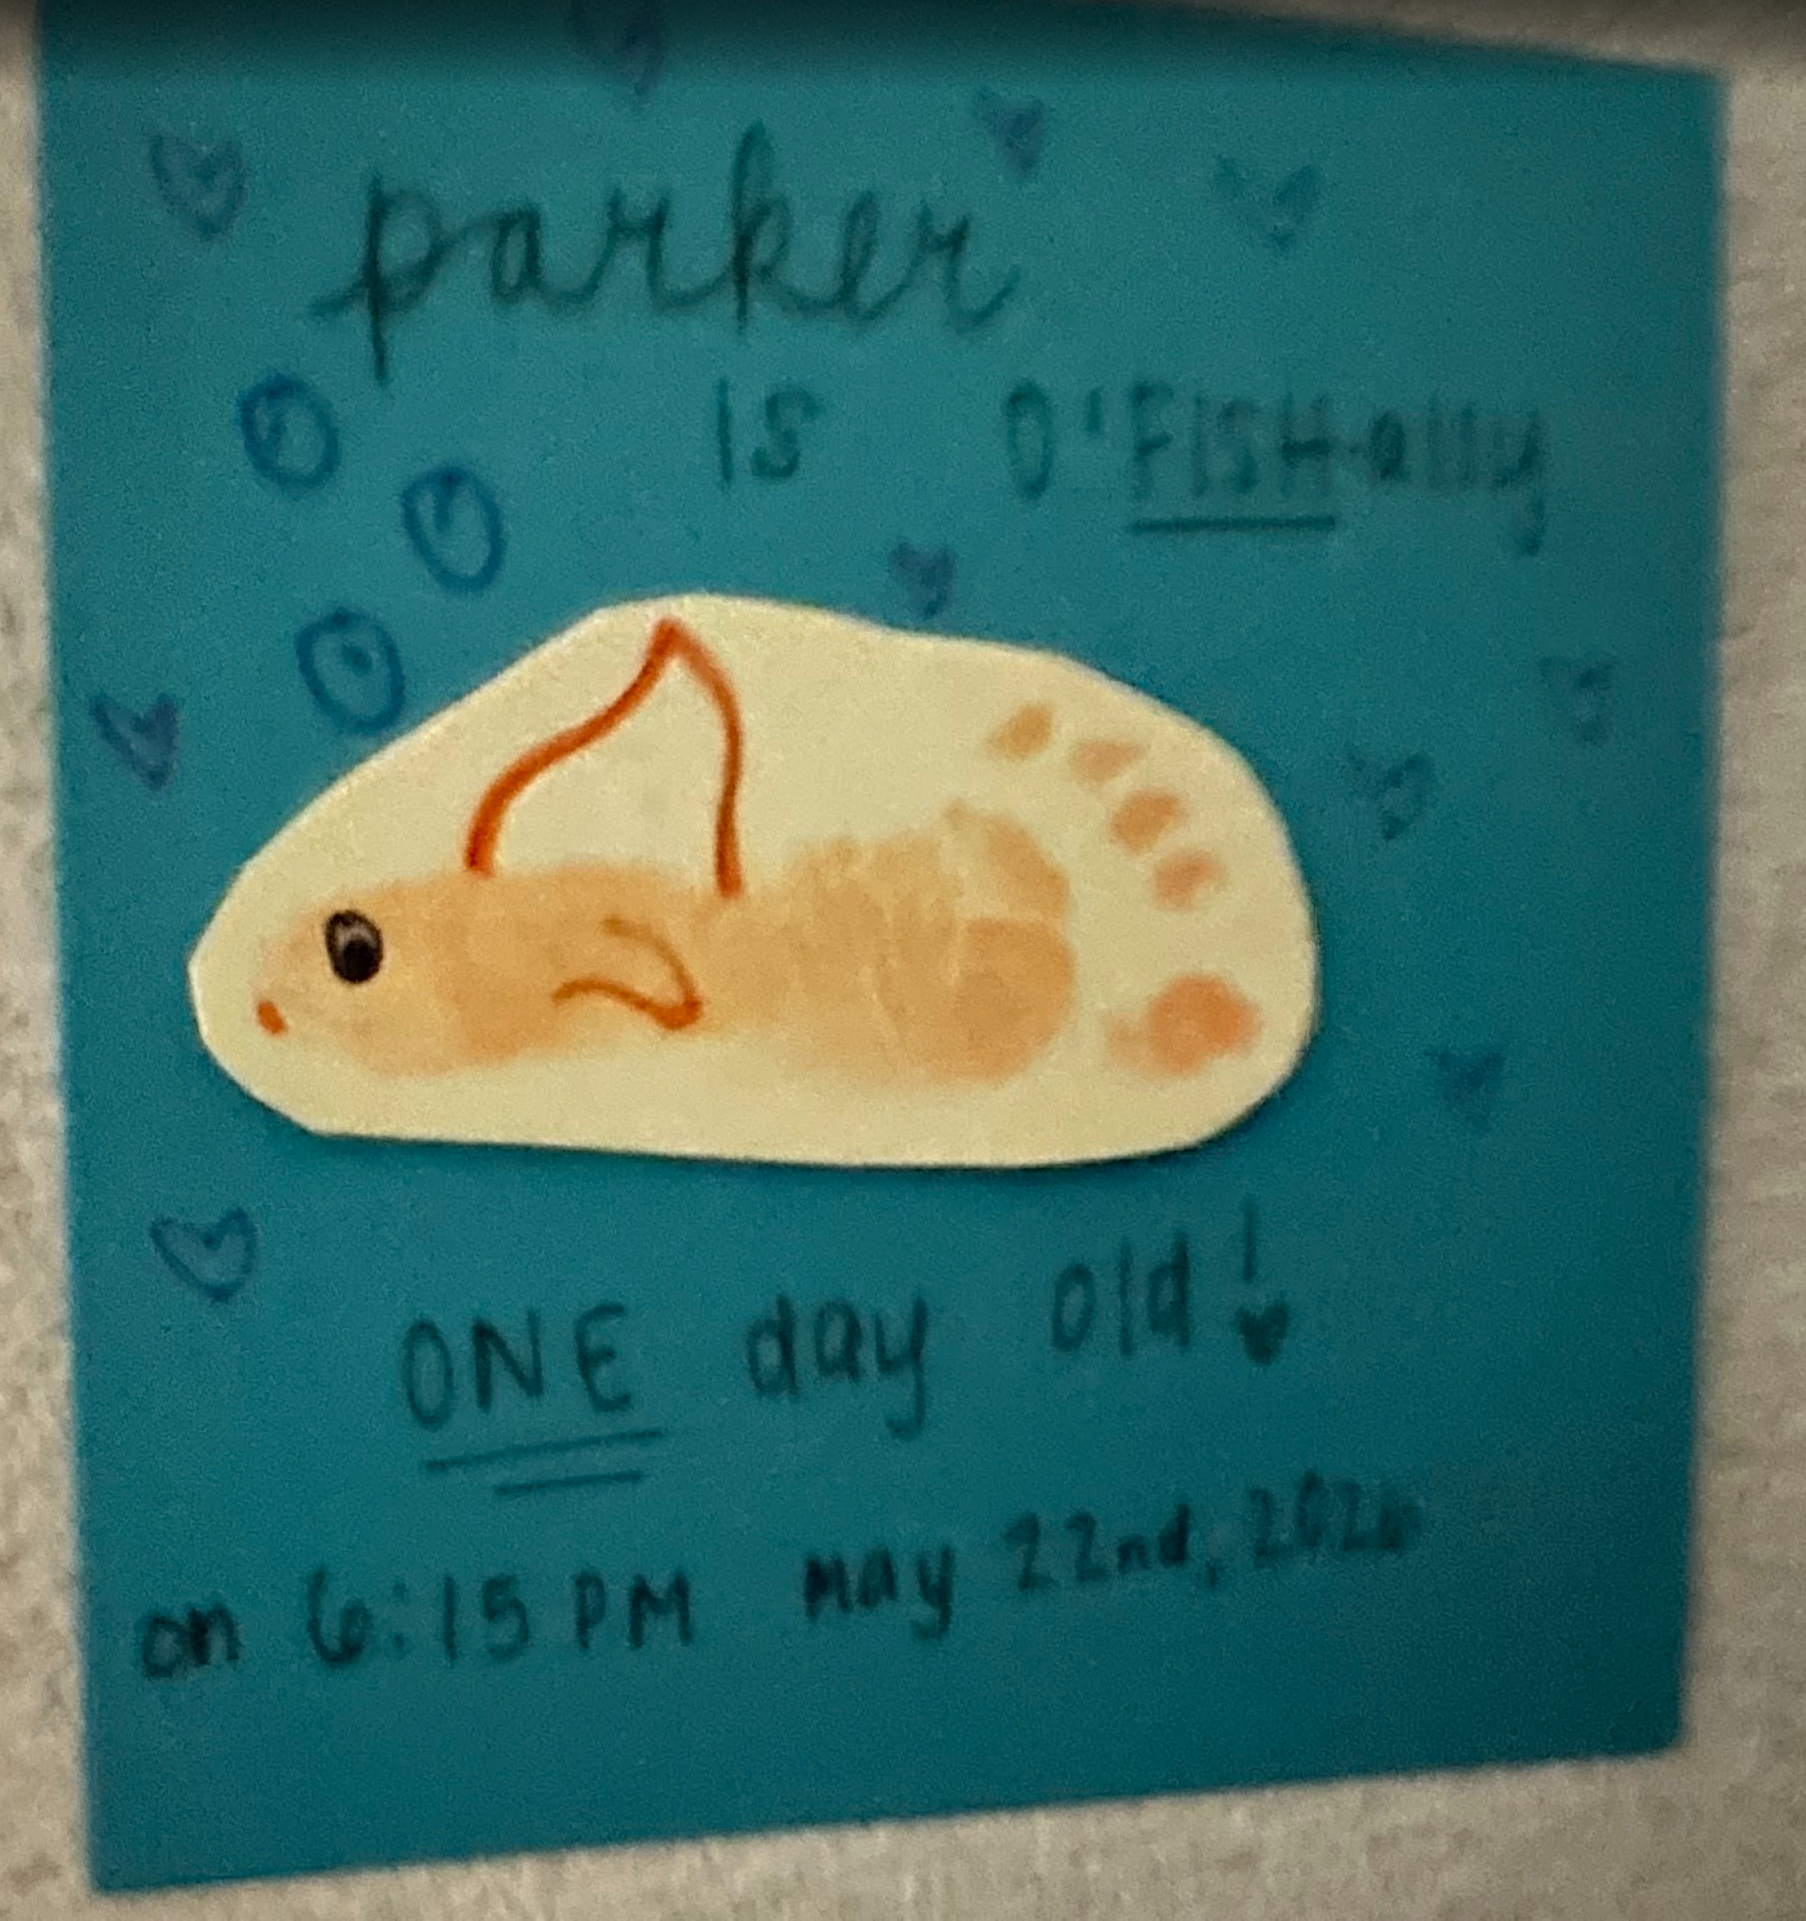 parker
is O'FISH-ally
ONE day old!
on 6:15 PM May 22nd, 2026